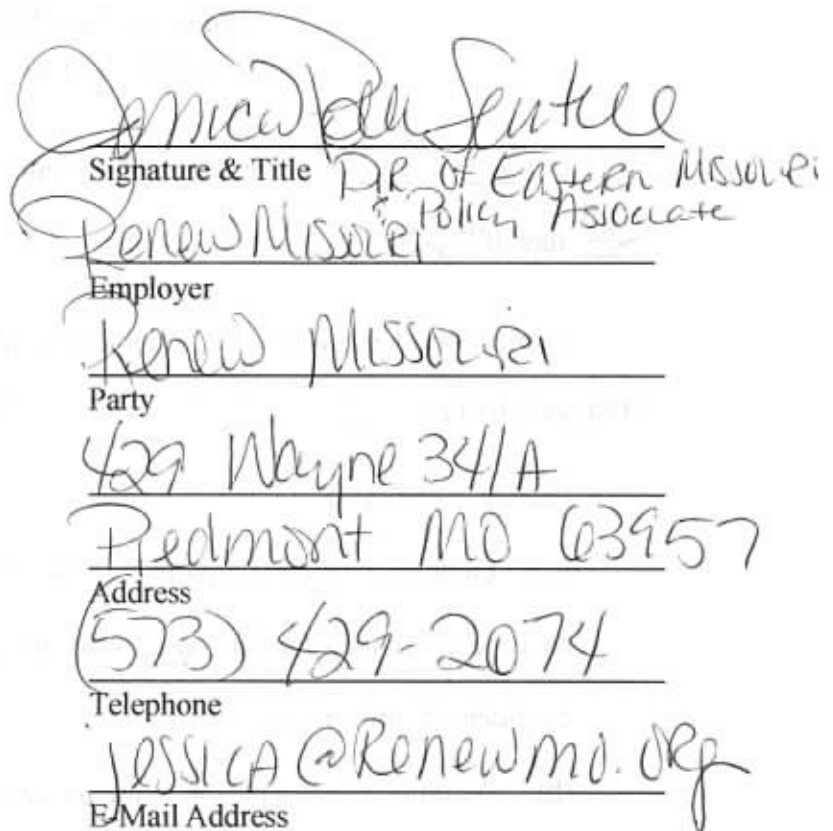 Jessica Polk Sentell
Signature & Title Dir of Eastern Missouri
& Policy Associate
Renew Missouri
Employer
Renew Missouri
Party
429 Wayne 341A
Piedmont MO 63957
Address
(573) 429-2074
Telephone
jessica@Renewmo.org
E-Mail Address